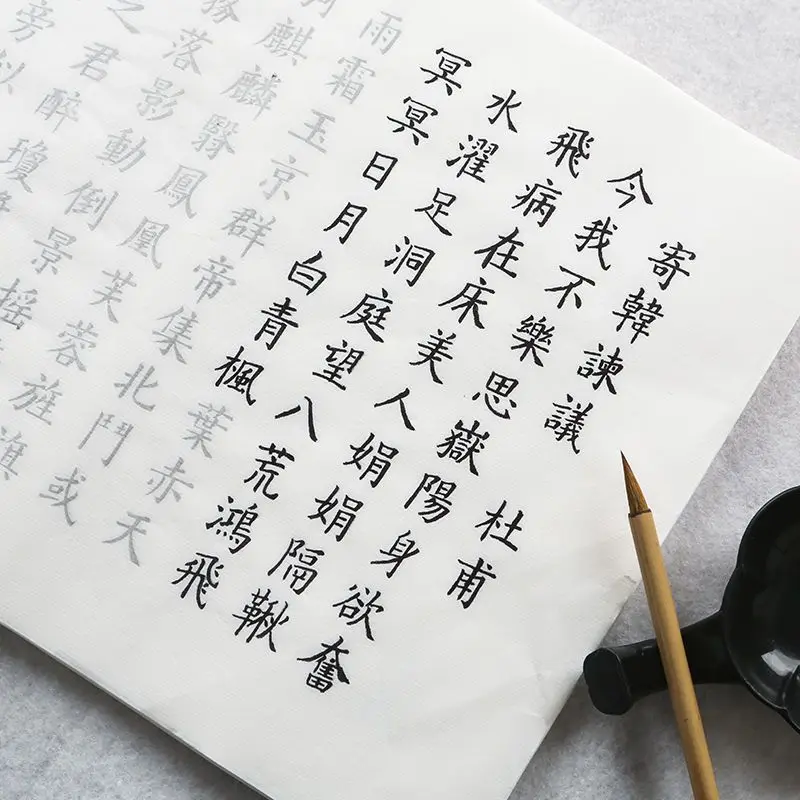 寄韓諫議 杜甫
今我不樂思嶽陽身欲奮
飛病在床美人娟娟隔鞦
水濯足洞庭望八荒鴻飛
冥冥日月白青楓葉赤天
雨霜玉京群帝集北鬥或
麒麟翳鳳凰芙蓉旌旗
落影動倒景搖
之君醉瓊
旁似